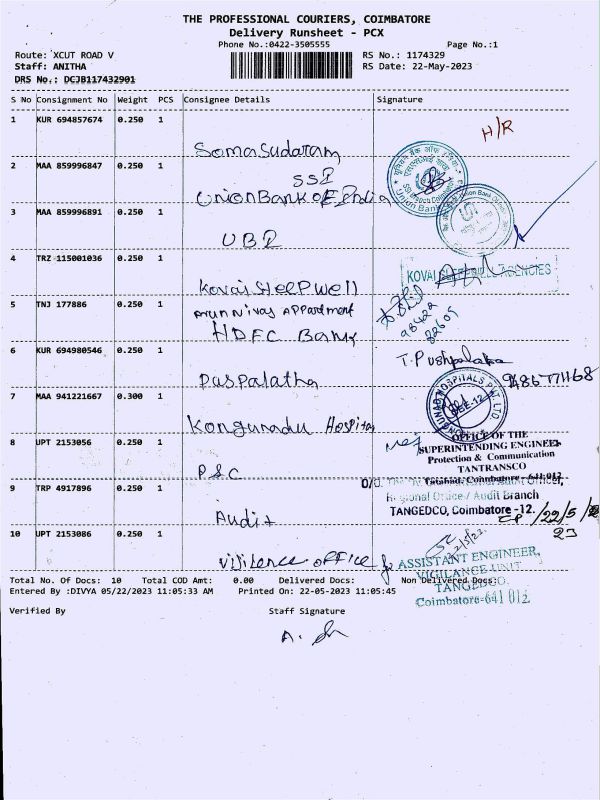 THE PROFESSIONAL COURIERS, COIMBATORE
Delivery Runsheet - PCX
Phone No.:0422-3505555
Page No.:1
Route: XCUT ROAD V
RS No.: 1174329
Staff: ANITHA
RS Date: 22-May-2023
DRS No.: DCJB117432901
S No Consignment No Weight PCS Consignee Details Signature
1 KUR 694857674 0.250 1
Somasudaram
H/R
2 MAA 859996847 0.250 1
SSI
Union Bank OF India
3 MAA 859996891 0.250 1
UBI
4 TRZ 115001036 0.250 1
Kovai Steel Well
KOVAI AGENCIES
5 TNJ 177886 0.250 1
Arun Nivas Appartment
HDFC Bank
98422
82609
6 KUR 694980546 0.250 1
Puspalatha
T. Pushpalatha
7 MAA 941221667 0.300 1
Kongunadu Hospital
8 UPT 2153056 0.250 1
OFFICE OF THE
SUPERINTENDING ENGINEER
Protection & Communication
TANTRANSCO
Tatabad, Coimbatore - 641 012
P&C
9 TRP 4917896 0.250 1
Regional Office / Audit Branch
TANGEDCO, Coimbatore -12.
22/5/
23
Audit
10 UPT 2153086 0.250 1
22/5/23
Vigilence office
ASSISTANT ENGINEER,
VIGILANCE UNIT
TANGEDCO
Coimbatore-641 012
Total No. Of Docs: 10 Total COD Amt: 0.00 Delivered Docs: Non Delivered Docs:
Entered By :DIVYA 05/22/2023 11:05:33 AM Printed On: 22-05-2023 11:05:45
Verified By Staff Signature